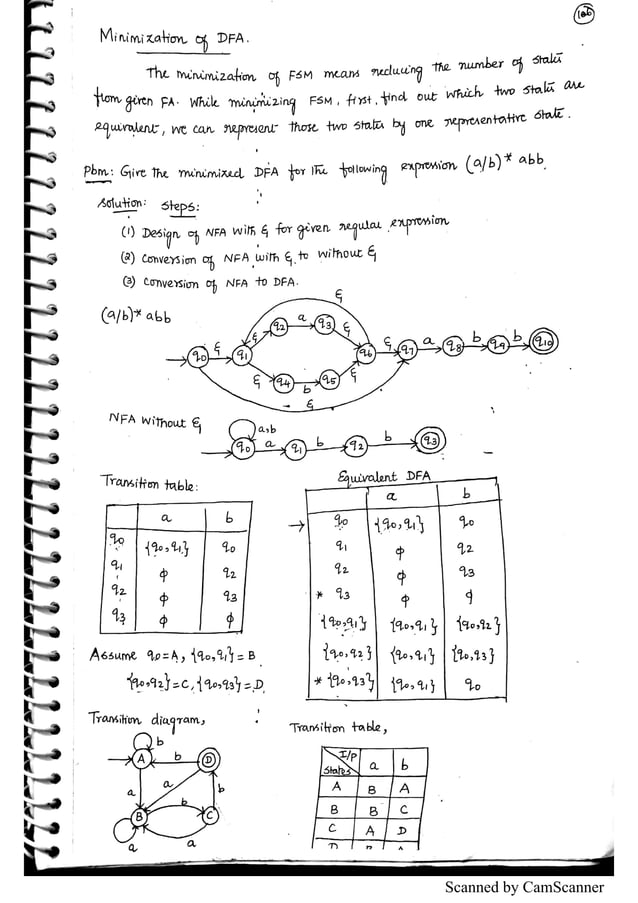 106
Minimization of DFA.
The minimization of FSM means reducing the number of states
from given FA. While minimizing FSM, first, find out which two states are
equivalent, we can represent those two states by one representative state.
Pbm: Give the minimized DFA for the following expression (a/b)* abb.
Solution: Steps:
(1) Design of NFA with ε for given regular expression
(2) Conversion of NFA with ε to without ε
(3) Conversion of NFA to DFA.
(a/b)* abb
ε
q0 ε q1 ε q2 a q3 ε q6 ε q7 a q8 b q9 b q10
ε q4 b q5 ε
ε
NFA without ε
a,b
q0 a q1 b q2 b q3
Transition table:
a b
q0 {q0,q1} q0
q1 φ q2
q2 φ q3
q3 φ φ
Equivalent DFA
a b
→ q0 {q0,q1} q0
q1 φ q2
q2 φ q3
* q3 φ φ
{q0,q1} {q0,q1} {q0,q2}
{q0,q2} {q0,q1} {q0,q3}
* {q0,q3} {q0,q1} q0
Assume q0=A, {q0,q1}=B
{q0,q2}=C, {q0,q3}=D.
Transition diagram,
b
A b D
a a b
B b C
a a
Transition table,
I/P
States a b
A B A
B B C
C A D
D B A
Scanned by CamScanner